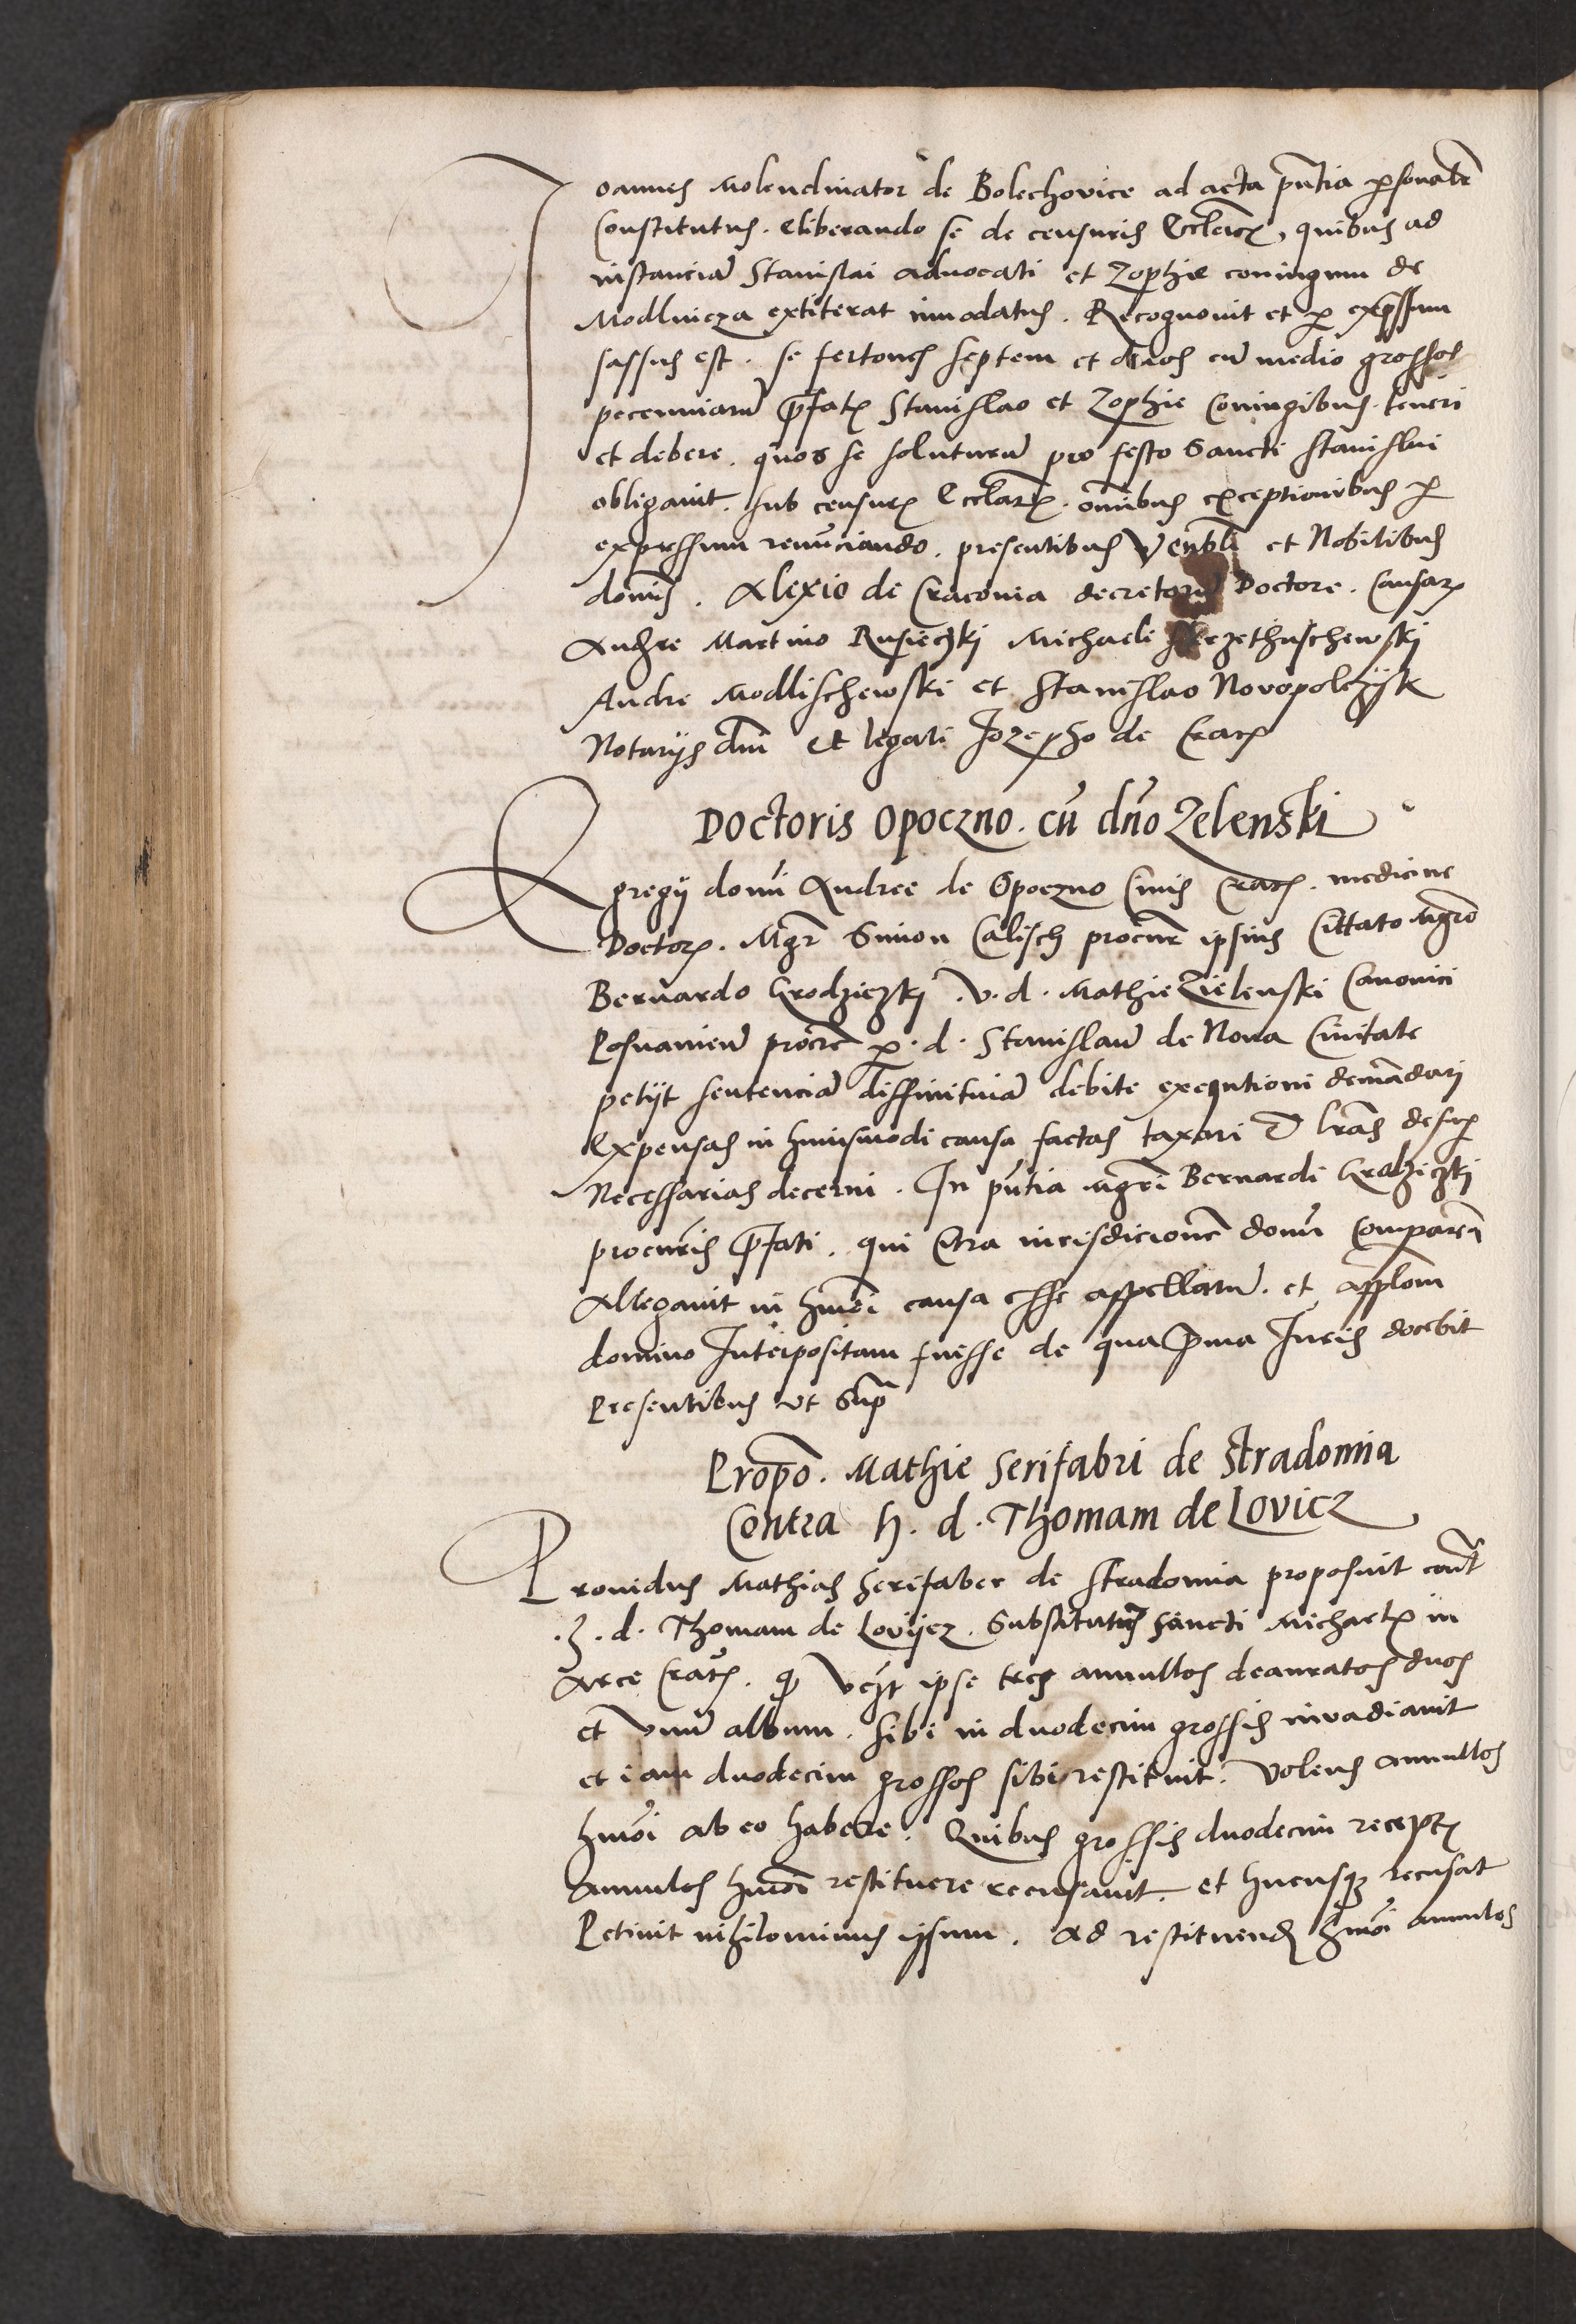 Joannes Molendinator de Bolechovice ad acta pñtia personalr̃
Constitutus. eliberando se de censuris Eccl̃iaȝ, quibus ad
instanciã Stanislai advocati et Zophie coniugum de
Modlnicza extiterat innodatus. Recognovit et per expressum
fassus est. se fertones septem et duos cũ medio grossos
peccuniarũ p̃fatȝ Stanislao et Zophie Coniugibus teneri
et debere. quos se soluturũ pro festo Sancti Stanislai
obligavit. sub censurȝ Eccl̃arȝ. om̃ibus exceptionibus per
expressum renũciando. presentibus Venbl̃i et Nobilibus
dom̃is. Alexio de Cracovia decretorũ Doctore. Causarȝ
Audr̃e Martino Rusieczki Michaele
Andre Modlischewski et Stanislao Novopolczyk
Notarijs dñi et legati Jozepho de Cracȝ
Doctoris Opoczno. cũ dño Zelenski
Egregij domĩ Andree de Opoczno Civis Cracȝ. medicine
Doctorȝ. Mgr̃ Simon Calisch procur̃ ipsius Cittato Mgr̃o
Bernardo Grodziczki. v. d. Mathie Zielenski Canonici
Posnanieñ procr̃e per. d. Stanislaũ de Nova Civitate
petijt sentenciã diffinitivã debite exequtioni demãdari
Expensas in huiusmodi causa factas taxari et lr̃as desuper
Necessarias decerni. In pñtia Mgr̃i Bernardi Grodziczki
procuris p̃fati. qui Citra iurisdicionẽ domĩ Comparẽs
Allegavit in hmõi causa esse appellatũ. et applõm
domino Interpositam fuisse de qua p̃ma Juris docebit
Presentibus ut Sup̃
Propõ. Mathie serifabri de Stradomia
Contra h. d. Thomam de Lovicz
Providus Mathias serifaber de Stradomia proposuit cont̃
.h. d. Thomam de Lovijcz. Substitutũ Sancti Michaelȝ in
Arce Cracȝ. qz ipse tres annullos deauratos duos
et unũ album. sibi in duodecim grossis invadiavit
et iam duodecim grossos sibi restituit. Volens annullos
hmõi ab eo habere. Quibus grossis duodecim receptȝ
annulos hmõi restituere recusavit. et hucusqȝ recusat
Petivit nihilominus ipsum. Ad restituendȝ hmõi annulos